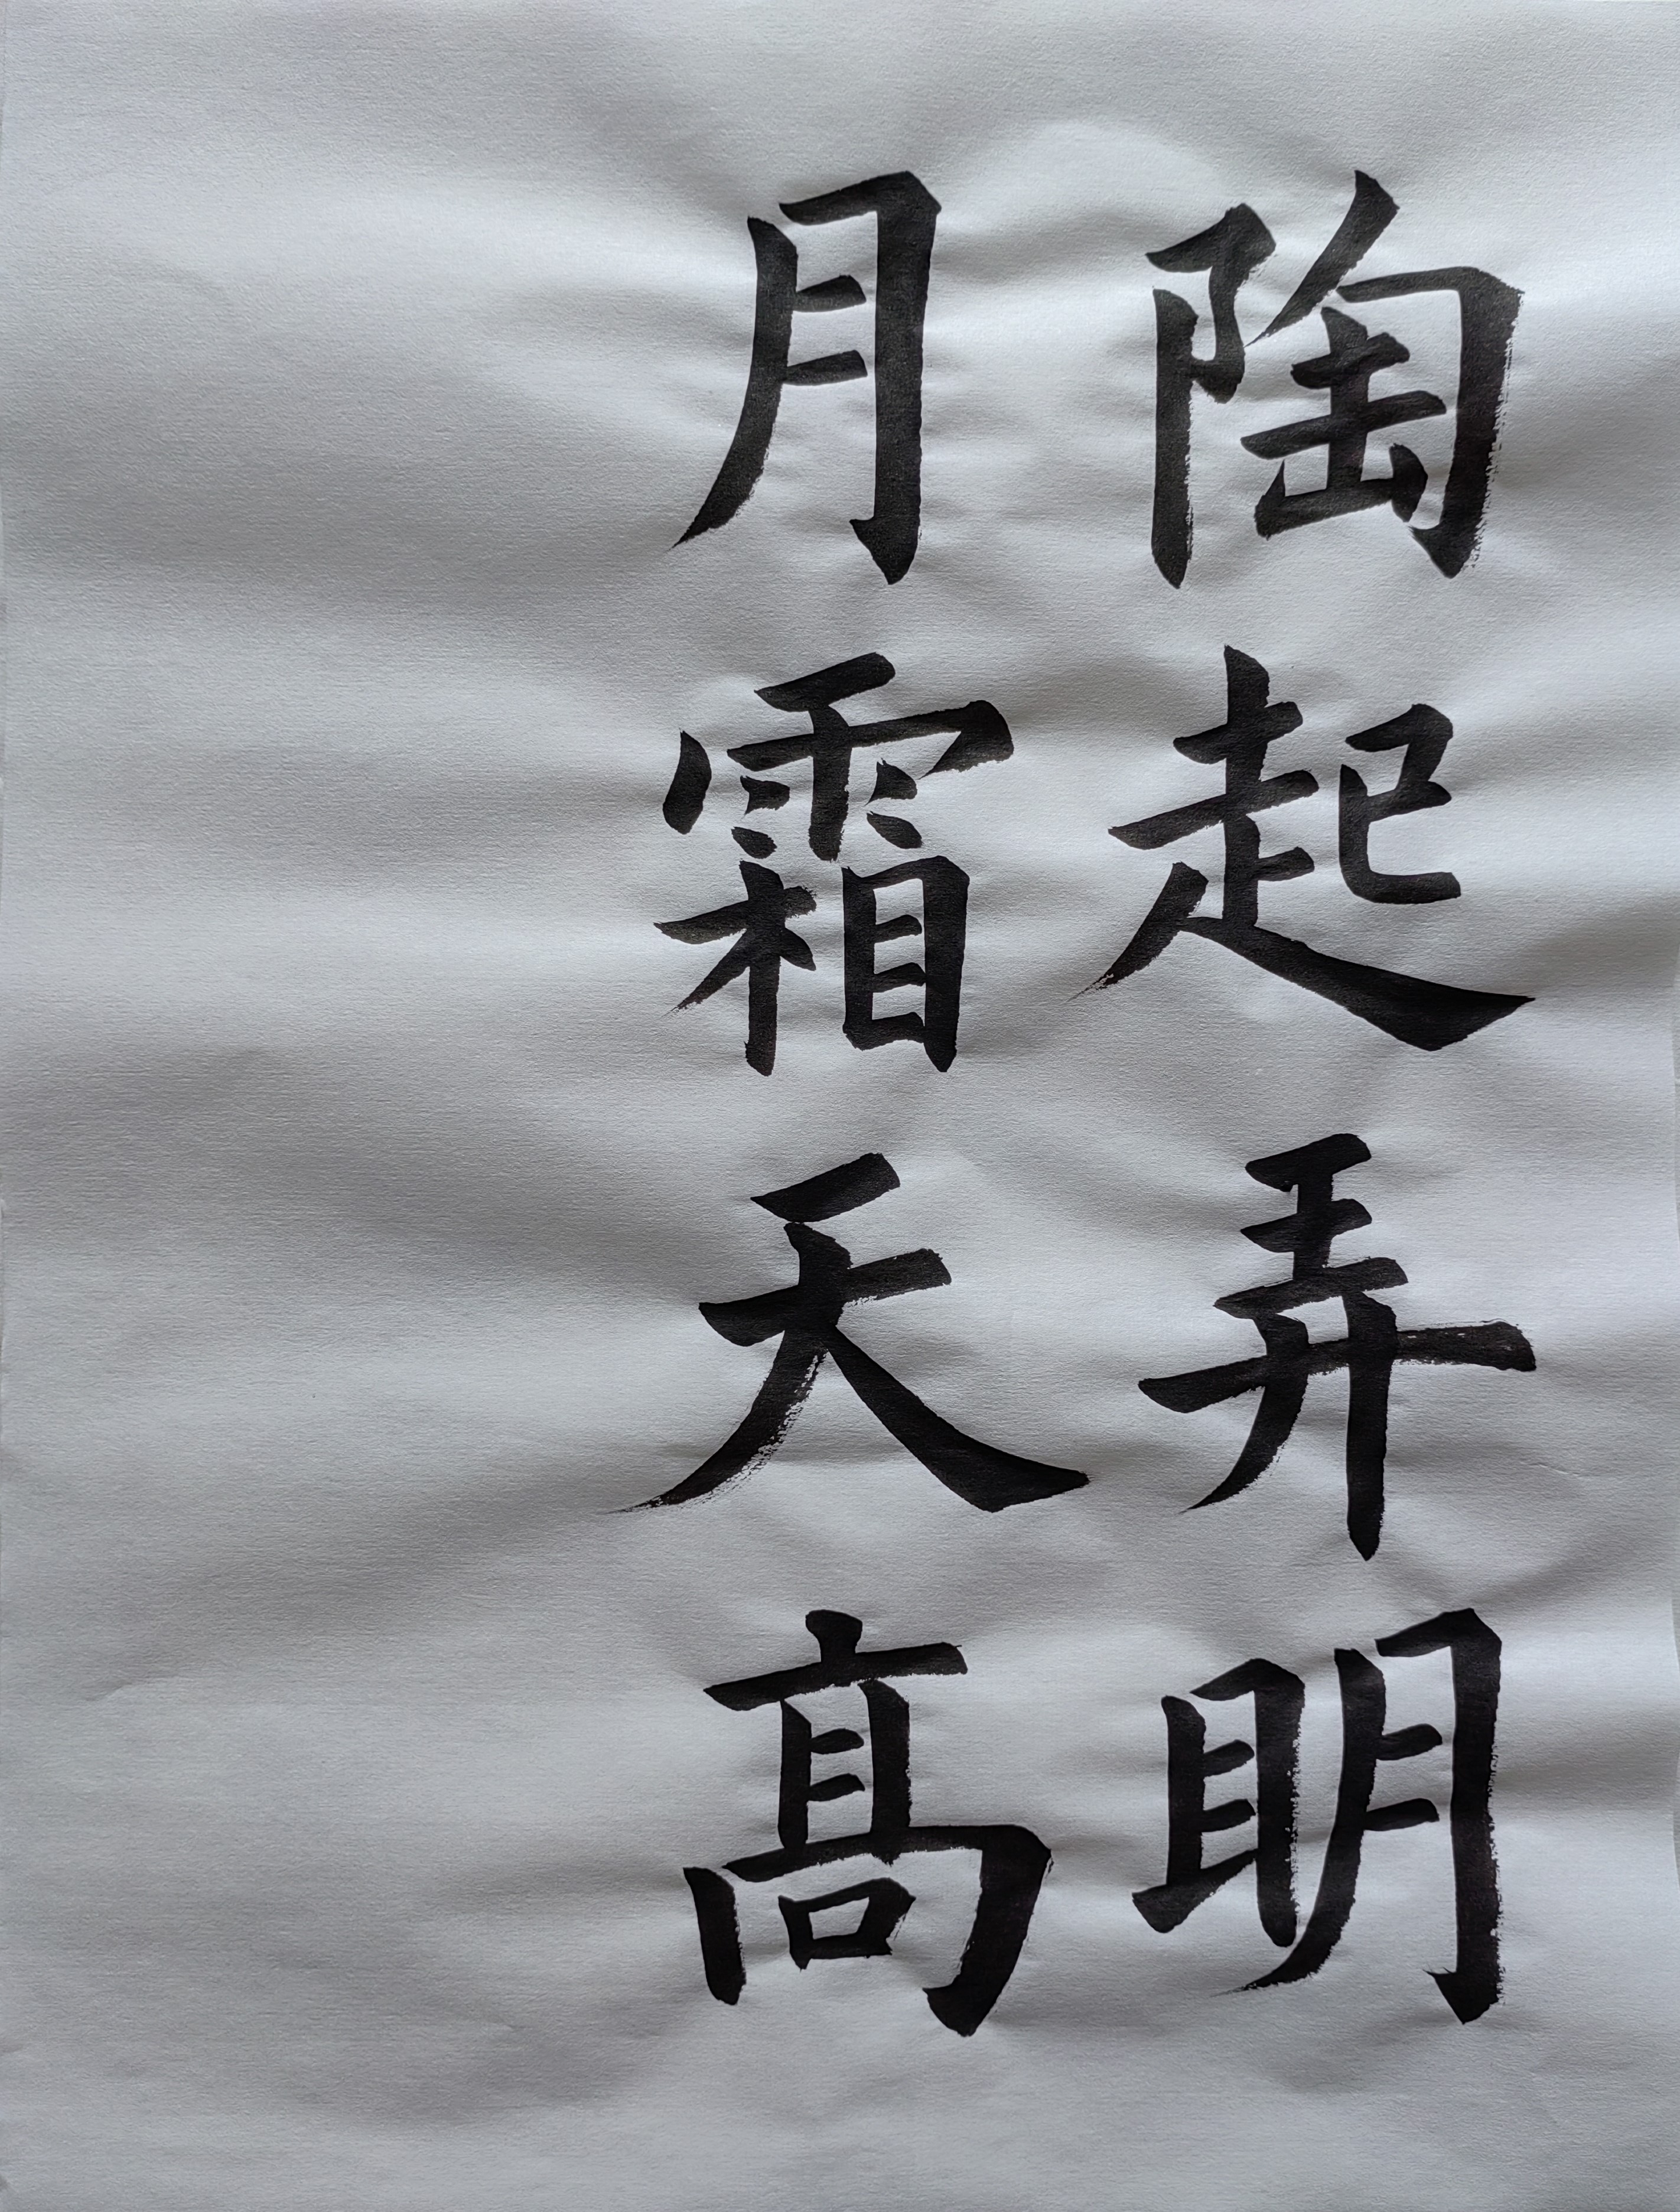 陶起弄明
月霜天高